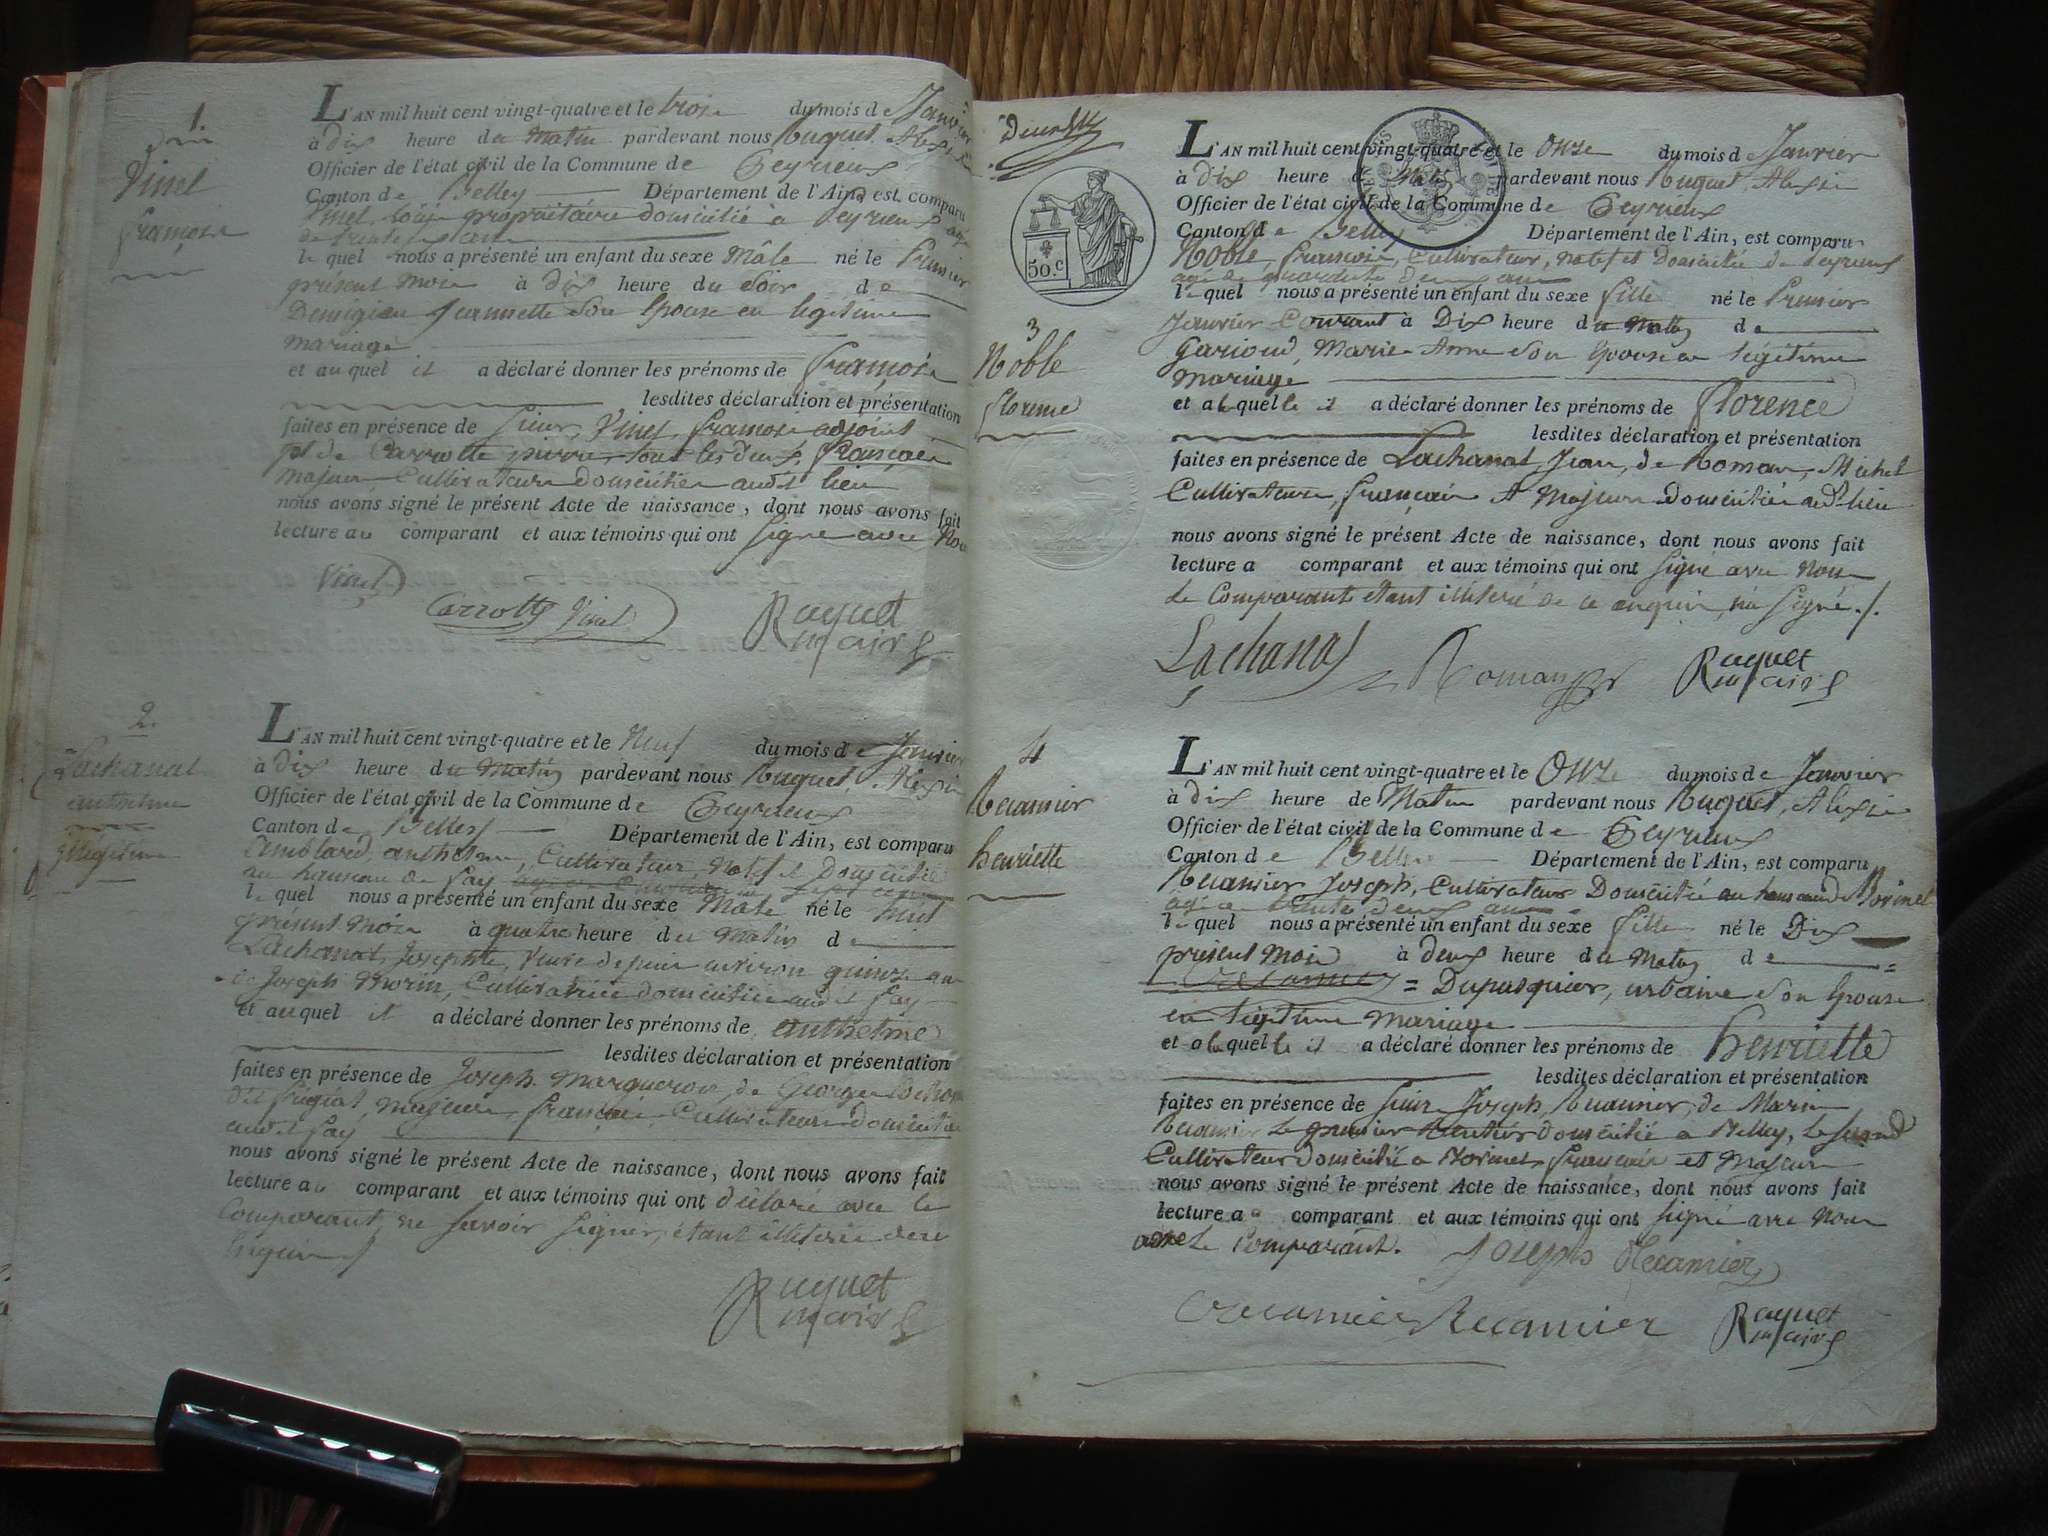 1.
Vinet
françois
L'AN mil huit cent vingt-quatre et le trois du mois de Janvier
à dix heure du Matin pardevant nous Ruquet Alexis
Officier de l'état civil de la Commune de Peyrieux
Canton de Belley Département de l'Ain, est comparu
Vinet propriétaire domicilié à Peyrieux
de trente ans
lequel nous a présenté un enfant du sexe Mâle né le Premier
présent mois à dix heure du Soir de
Jeannette son Epouse en légitime
mariage
et auquel il a déclaré donner les prénoms de françois
lesdites déclaration et présentation
faites en présence de Sieur Vinet françois adjoint
et de Carrotte pierre, tous les deux français
majeurs Cultivateurs domiciliés audit lieu
nous avons signé le présent Acte de naissance, dont nous avons fait
lecture au comparant et aux témoins qui ont signé avec Nous
Vinet
Carrotte Vinet Ruquet
maire
2.
Lachanal
anthelme
illégitime
L'AN mil huit cent vingt-quatre et le Neuf du mois de Janvier
à dix heure du Matin pardevant nous Ruquet, Alexis
Officier de l'état civil de la Commune de Peyrieux
Canton de Belley Département de l'Ain, est comparu
Amblard, anthelme, Cultivateur, Natif et Domicilié
au hameau de fay
lequel nous a présenté un enfant du sexe Mâle né le huit
présent mois à quatre heure du Matin de
Lachanal, Josephte, Veuve depuis environ quinze ans
de Joseph Morin, Cultivatrice domiciliée audit fay
et auquel il a déclaré donner les prénoms de anthelme
lesdites déclaration et présentation
faites en présence de Joseph Marqueron, de George
dit frégiat, majeurs, français, Cultivateurs domiciliés
audit fay
nous avons signé le présent Acte de naissance, dont nous avons fait
lecture au comparant et aux témoins qui ont déclaré avec le
Comparant, ne savoir signer, étant illiteré de ce
enquis
Ruquet
maire
deux
50.c
3
Noble
florence
L'AN mil huit cent vingt-quatre et le Onze du mois de Janvier
à dix heure du Matin pardevant nous Ruquet, Alexis
Officier de l'état civil de la Commune de Peyrieux
Canton de Belley Département de l'Ain, est comparu
Noble, françois, Cultivateur, natif et Domicilié de Peyrieux
agé de quarante deux ans
lequel nous a présenté un enfant du sexe fille né le Premier
Janvier Courant à Dix heure du Matin de
Gariond, Marie Anne son Epouse en légitime
mariage
et a laquelle il a déclaré donner les prénoms de florence
lesdites déclaration et présentation
faites en présence de Lachanal, Jean, de Roman, Michel
Cultivateurs, français et Majeurs domiciliés audit lieu
nous avons signé le présent Acte de naissance, dont nous avons fait
lecture a comparant et aux témoins qui ont signé avec Nous
le Comparant étant illiteré de ce enquis, n'a signé./.
Lachanal Roman Ruquet
maire
4
Recamier
henriette
L'AN mil huit cent vingt-quatre et le Onze du mois de Janvier
à dix heure de Matin pardevant nous Ruquet, Alexis
Officier de l'état civil de la Commune de Peyrieux
Canton de Belley Département de l'Ain, est comparu
Recamier Joseph, Cultivateur Domicilié au hameau de
agé de trente deux ans
lequel nous a présenté un enfant du sexe fille né le Dix
présent Mois à deux heure du Matin de
Recamier = Dupasquier, urbaine son Epouse
en légitime Mariage
et a laquelle il a déclaré donner les prénoms de henriette
lesdites déclaration et présentation
faites en présence de Sieur Joseph, Recamier, de Marin
Recamier Le premier Rentier domicilié a Belley, Le second
Cultivateur domicilié a français et Majeurs
nous avons signé le présent Acte de naissance, dont nous avons fait
lecture au comparant et aux témoins qui ont signé avec Nous
avec le Comparant. Joseph Recamier
Recamier Recamier Ruquet
maire